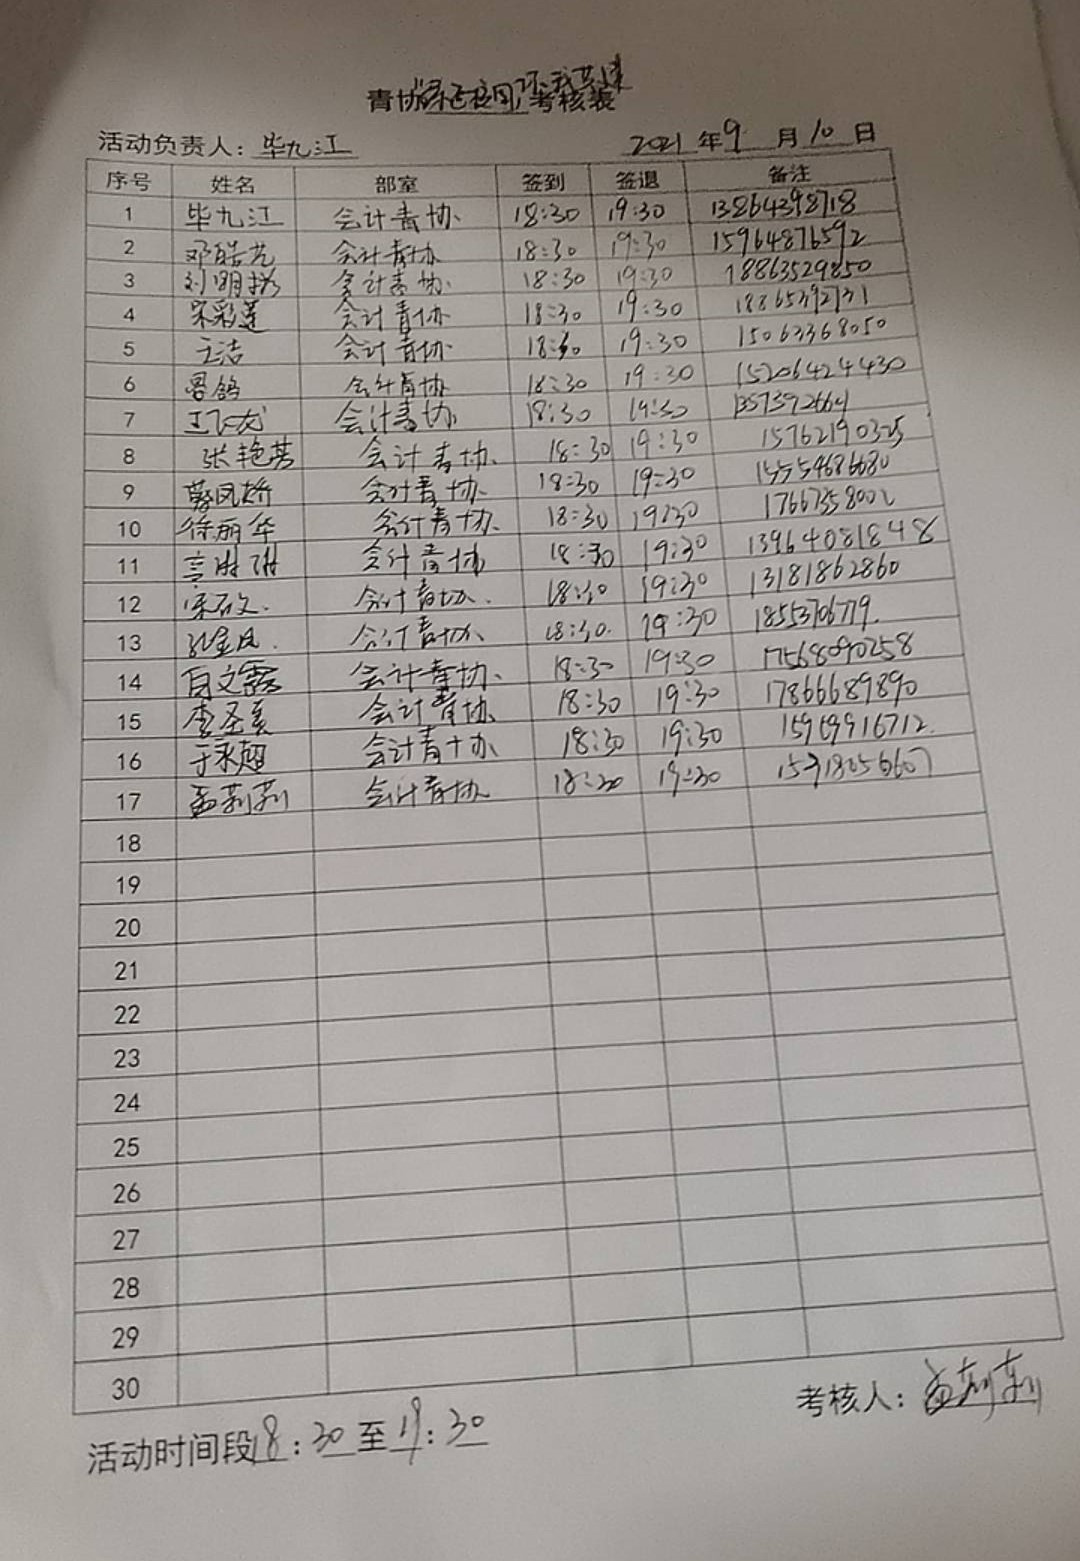 青协"绿色校园,环我共建"考核表
活动负责人: 毕九江 2021 年 9 月 10 日
序号 姓名 部室 签到 签退 备注
1 毕九江 会计青协 18:30 19:30 13864398718
2 邓皓艺 会计青协 18:30 19:30 15964876592
3 刘明 会计青协 18:30 19:30 18863529850
4 宋彩莲 会计青协 18:30 19:30 18865392731
5 王洁 会计青协 18:30 19:30 15063368050
6 鸽 会计青协 18:30 19:30 15206424430
7 王飞龙 会计青协 18:30 19:30 1357392664
8 张艳芳 会计青协 18:30 19:30 15762190325
9 蔡凤娇 会计青协 18:30 19:30 15554686680
10 徐丽华 会计青协 18:30 19:30 17667358002
11 会计青协 18:30 19:30 13964081848
12 宋石文 会计青协 18:30 19:30 13181862860
13 孔金凤 会计青协 18:30 19:30 18553706779
14 白文露 会计青协 18:30 19:30 17568090258
15 李圣美 会计青协 18:30 19:30 17866689890
16 于永翘 会计青协 18:30 19:30 15969916712
17 孟莉莉 会计青协 18:30 19:30
18
19
20
21
22
23
24
25
26
27
28
29
30
考核人: 孟莉莉
活动时间段 18:30 至 19:30